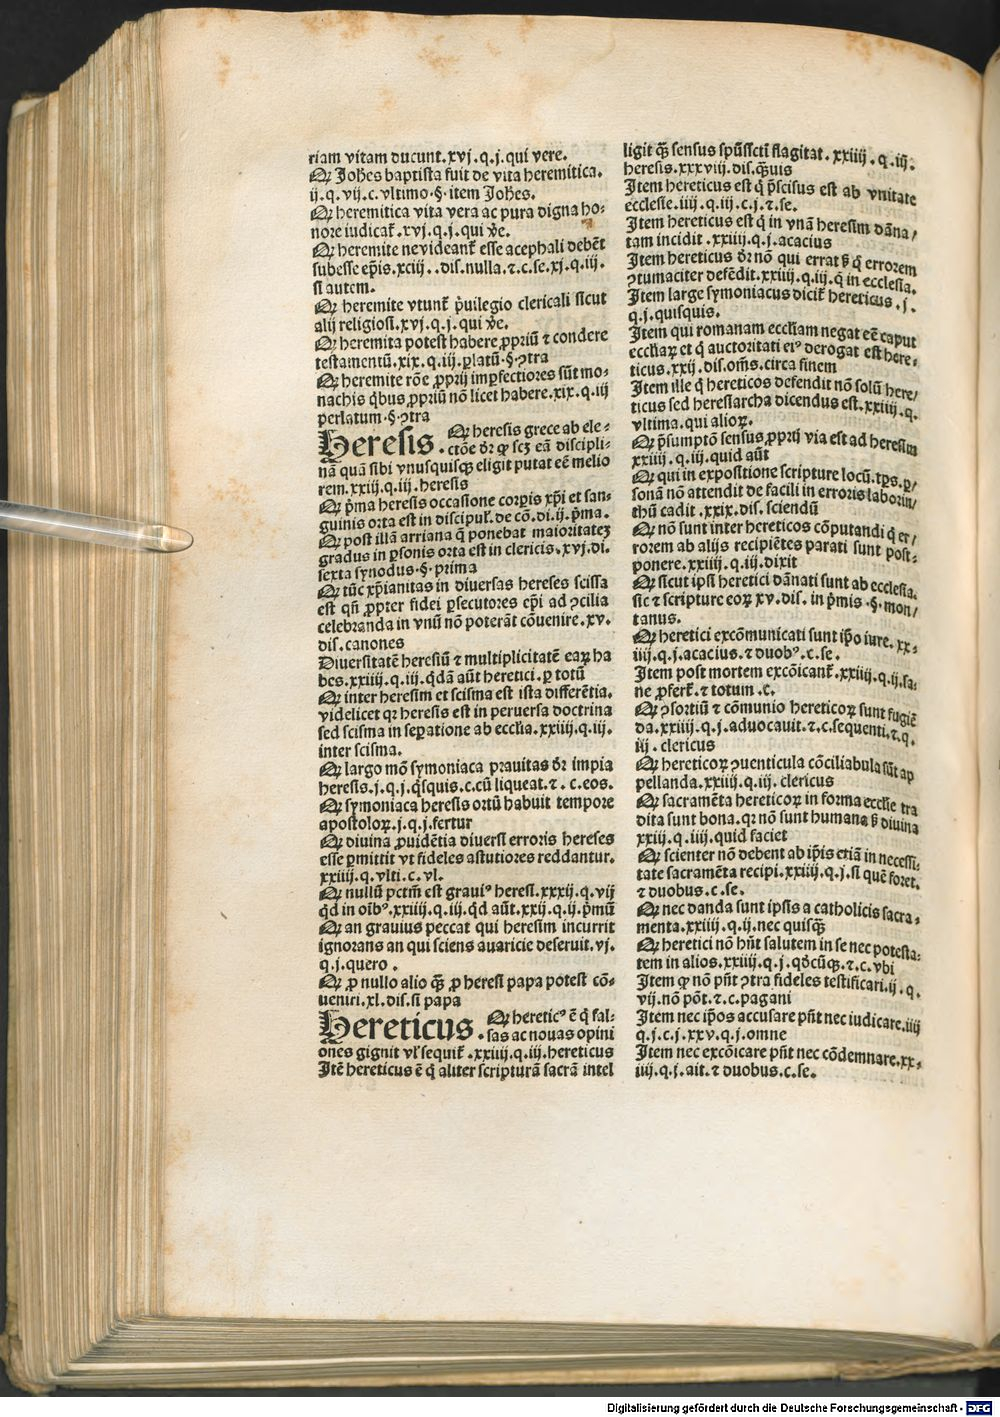 riam vitam ducunt.xvj.q.j.qui vere.
Qꝛ Joħes baptista fuit de vita heremitica.
ij.q.vij.c.vltimo.§.item Joħes.
Qꝛ heremitica vita vera ac pura digna ho⸗
nore iudicat᷑.xvj.q.j.qui v̄e.
Qꝛ heremite ne videant᷑ esse acephali debēt
subesse ep̄is.xciij..dis.nulla.⁊.c.se.xj.q.iij.
si autem.
Qꝛ heremite vtunt᷑ p̄uilegio clericali sicut
alij religiosi.xvj.q.j.qui v̄e.
Qꝛ heremita potest habere ꝓpriū ⁊ condere
testamentū.xix.q.iij.ꝑlatū.§.ꝯtra
Qꝛ heremite rōe ꝓprij imꝑfectiores sūt mo⸗
nachis q̄bus ꝓpriū nō licet habere.xix.q.iij
perlatum.§.ꝯtra
Heresis. Qꝛ heresis grece ab ele⸗
ctōe dr̄ ꝙ scꝫ eā discipli⸗
nā quā sibi vnusquisqꝫ eligit putat eē melio
rem.xxiij.q.iij.heresis
Qꝛ p̄ma heresis occasione corꝑis xp̄i et san⸗
guinis orta est in discipul᷑.de cō.di.ij.p̄ma.
Qꝛ post illā arriana q̄ ponebat maioritateꝫ
gradus in ꝑsonis orta est in clericis.xvj.di.
sexta synodus.§.prima
Qꝛ tūc xp̄ianitas in diuersas hereses scissa
est qn̄ ꝓpter fidei ꝑsecutores ep̄i ad ꝯcilia
celebranda in vnū nō poterāt cōuenire.xv.
dis.canones
Diuersitatē heresiū ⁊ multiplicitatē eaꝝ ha
bes.xxiiij.q.iij.q̄dā aūt heretici.ꝑ totū
Qꝛ inter heresim et scisma est ista differētia.
videlicet qꝛ heresis est in peruersa doctrina
sed scisma in seꝑatione ab eccl̄ia.xxiiij.q.iij.
inter scisma.
Qꝛ largo mō symoniaca prauitas dr̄ impia
heresis.j.q.j.q̄squis.c.cū liqueat.⁊. c.eos.
Qꝛ symoniaca heresis ortū habuit tempore
apostoloꝝ.j.q.j.fertur
Qꝛ diuina ꝓuidētia diuersi erroris hereses
esse ꝑmittit vt fideles astutiores reddantur.
xxiiij.q.vlti.c.vl.
Qꝛ nullū pctm̄ est grauiꝰ heresi.xxxij.q.vij
q̄d in oībꝰ.xxiiij.q.iij.q̄d aūt.xxij.q.ij.p̄mū
Qꝛ an grauius peccat qui heresim incurrit
ignorans an qui sciens auaricie deseruit.vj.
q.j.quero.
Qꝛ ꝓ nullo alio qꝫ̄ ꝓ heresi papa potest cō⸗
ueniri.xl.dis.si papa
Hereticus. Qꝛ hereticꝰ ē q̄ fal⸗
sas ac nouas opini
ones gignit vl᷑ sequit᷑.xxiiij.q.iij.hereticus
Jtē hereticus ē q̄ aliter scripturā sacrā intel
ligit qꝫ̄ sensus spūssctī flagitat.xxiiij.q.iij.
heresis.xxxviij.dis.qꝫ̄uis
Jtem hereticus est q̄ p̄scisus est ab vnitate
ecclesie.iiij.q.iij.c.j.⁊.se.
Jtem hereticus est q̄ in vnā heresim dāna/
tam incidit.xxiiij.q.j.acacius
Jtem hereticus dr̄ nō qui errat sꝫ q̄ errorem
ꝯtumaciter defēdit.xxiiij.q.iij.q̄ in ecclesia.
Jtem large symoniacus dicit᷑ hereticus.j.
q.j.quisquis.
Jtem qui romanam eccl̄iam negat eē caput
eccl̄iaꝝ et q̄ auctoritati eiꝰ derogat est here⸗
ticus.xxij.dis.om̄s.circa finem
Jtem ille q̄ hereticos defendit nō solū here/
ticus sed heresiarcha dicendus est.xxiiij.q.
vltima.qui alioꝝ.
Qꝛ p̄sumptō sensus ꝓprij via est ad heresim
xxiiij.q.iij.quid aūt
Qꝛ qui in expositione scripture locū.tp̄s.ꝑ/
sonā nō attendit de facili in erroris laborin/
thū cadit.xxix.dis.sciendū
Qꝛ nō sunt inter hereticos cōputandi q̄ er/
rorem ab alijs recipiētes parati sunt post⸗
ponere.xxiiij.q.iij.dixit
Qꝛ sicut ipsi heretici dānati sunt ab ecclesia.
sic ⁊ scripture eoꝝ xv.dis.in p̄mis.§.mon/
tanus.
Qꝛ heretici excōmunicati sunt ip̄o iure.xx⸗
iiij.q.j.acacius.⁊ duobꝰ.c.se.
Jtem post mortem excōicant᷑.xxiiij.q.ij.sa⸗
ne ꝓfert᷑.⁊ totum.c.
Qꝛ ꝯsortiū ⁊ cōmunio hereticoꝝ sunt fugiē
da.xxiiij.q.j.aduocauit.⁊.c.sequenti.⁊.q.
iij.clericus
Qꝛ hereticoꝝ ꝯuenticula cōciliabula sūt ap
pellanda.xxiiij.q.iij.clericus
Qꝛ sacramēta hereticoꝝ in forma eccl̄ie tra
dita sunt bona.qꝛ nō sunt humana sꝫ diuina
xxiij.q.iiij.quid faciet
Qꝛ scienter nō debent ab ip̄is etiā in necessi⸗
tate sacramēta recipi.xxiiij.q.j.si quē foret.
⁊ duobus.c.se.
Qꝛ nec danda sunt ipsis a catholicis sacra⸗
menta.xxiiij.q.ij.nec quisqꝫ̄
Qꝛ heretici nō hn̄t salutem in se nec potesta⸗
tem in alios.xxiiij.q.j.qd̄cūqꝫ.⁊.c.vbi
Jtem ꝙ nō pn̄t ꝯtra fideles testificari.ij.q.
vij.nō pōt.⁊.c.pagani
Jtem nec ip̄os accusare pn̄t nec iudicare.iiij
q.j.c.j.xxv.q.j.omne
Jtem nec excōicare pn̄t nec cōdemnare.xx⸗
iiij.q.j.ait.⁊ duobus.c.se.
Digitalisierung gefördert durch die Deutsche Forschungsgemeinschaft - DFG